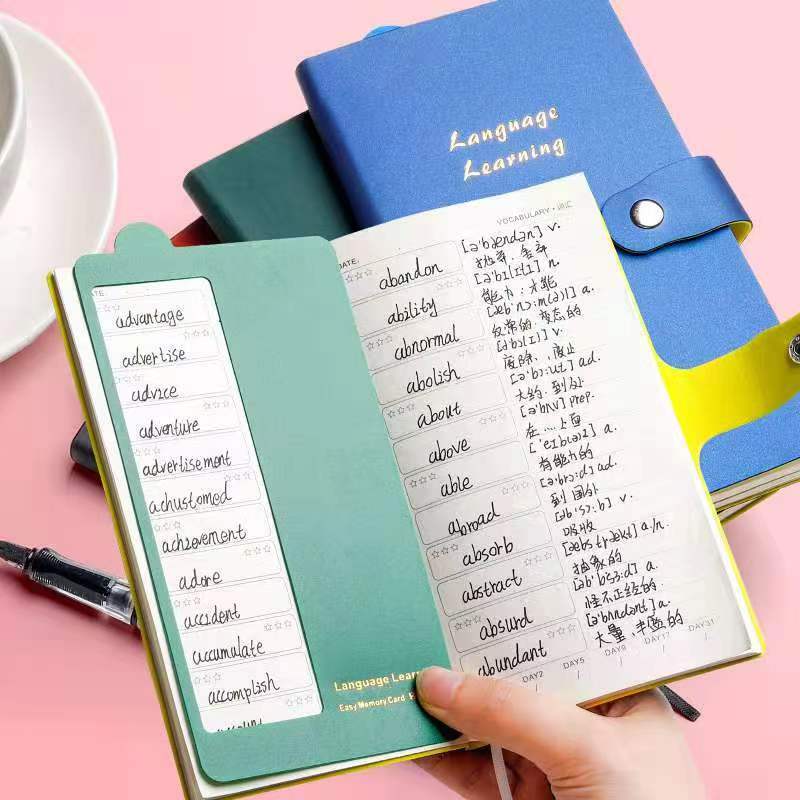 Language
Learning
VOCABULARY
DATE.
abandon
[ə'bændən] v.
抛弃、舍弃
ability
[ə'bɪlɪtɪ] n.
能力;才能
abnormal
[æb'nɔ:m(ə)l] a.
反常的,变态的
abolish
v.
废除、废止
about
ad.
大约.到处
above
[ə'bʌv] prep.
在...上面
able
a.
有能力的
abroad
[ə'brɔ:d] ad.
到国外
absorb
v.
吸收
abstract
a./n.
抽象的
absurd
a.
怪不正经的.
abundant
[ə'bʌndənt] a.
大量、丰富的
DAY2 DAY5 DAY9 DAY17 DAY31
advantage
advertise
advice
adventure
advertisement
achustomed
achievement
adore
accident
accumulate
accomplish
Language Lear
Easy Memory Card